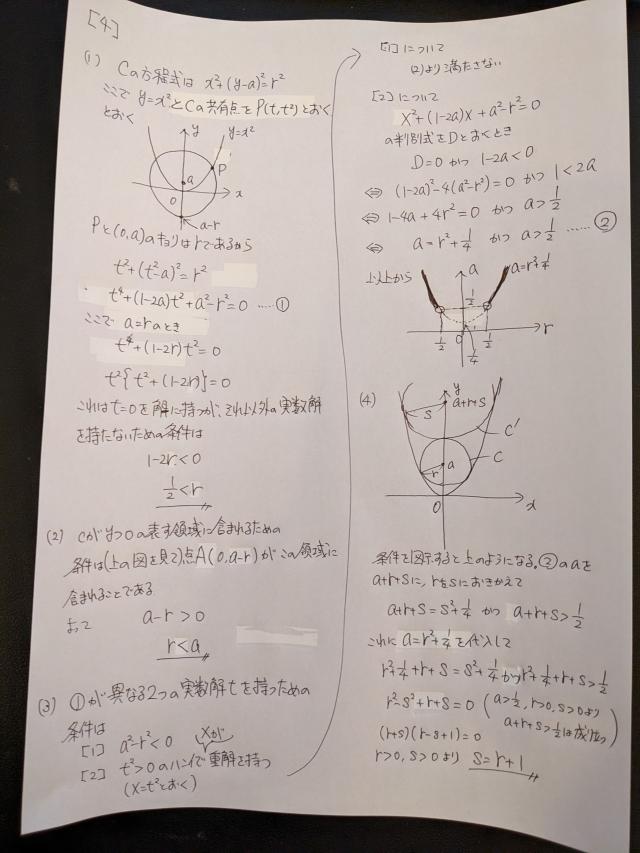 [4]
(1) Cの方程式は x²+(y-a)²=r²
ここで y=x²とCの共有点をP(t,t²)とおく
とおく
y
y=x²
a
P
0
x
a-r
Pと(0,a)のキョリはrであるから
t²+(t²-a)²=r²
t⁴+(1-2a)t²+a²-r²=0 ……①
ここで a=rのとき
t⁴+(1-2r)t²=0
t²{t²+(1-2r)}=0
これはt=0を解に持つが、それ以外の実数解
を持たないための条件は
1-2r<0
1/2<r
(2) Cがy>0の表す領域に含まれるための
条件は(上の図を見て)点A(0,a-r)がこの領域に
含まれることである
よって a-r>0
r<a
(3) ①が異なる2つの実数解tを持つための
条件は
[1] a²-r²<0 Xが
[2] t²>0のハンイで重解を持つ
(X=t²とおく)
[1]について
(2)より満たさない
[2]について
X²+(1-2a)X+a²-r²=0
の判別式をDとおくとき
D=0 かつ 1-2a<0
⇔ (1-2a)²-4(a²-r²)=0 かつ 1<2a
⇔ 1-4a+4r²=0 かつ a>1/2
⇔ a=r²+1/4 かつ a>1/2 ……②
以上から
a
a=r²+1/4
1/2
r
1/2
0
1/2
1/4
(4)
y
a+r+s
s
C'
a
C
r
0
x
条件を図示すると上のようになる。②のaを
a+r+sに、rをsにおきかえて
a+r+s=s²+1/4 かつ a+r+s>1/2
これに a=r²+1/4を代入して
r²+1/4+r+s=s²+1/4かつr²+1/4+r+s>1/2
r²-s²+r+s=0 (a>1/2, r>0, s>0より
a+r+s>1/2は成り立つ)
(r+s)(r-s+1)=0
r>0, s>0より s=r+1